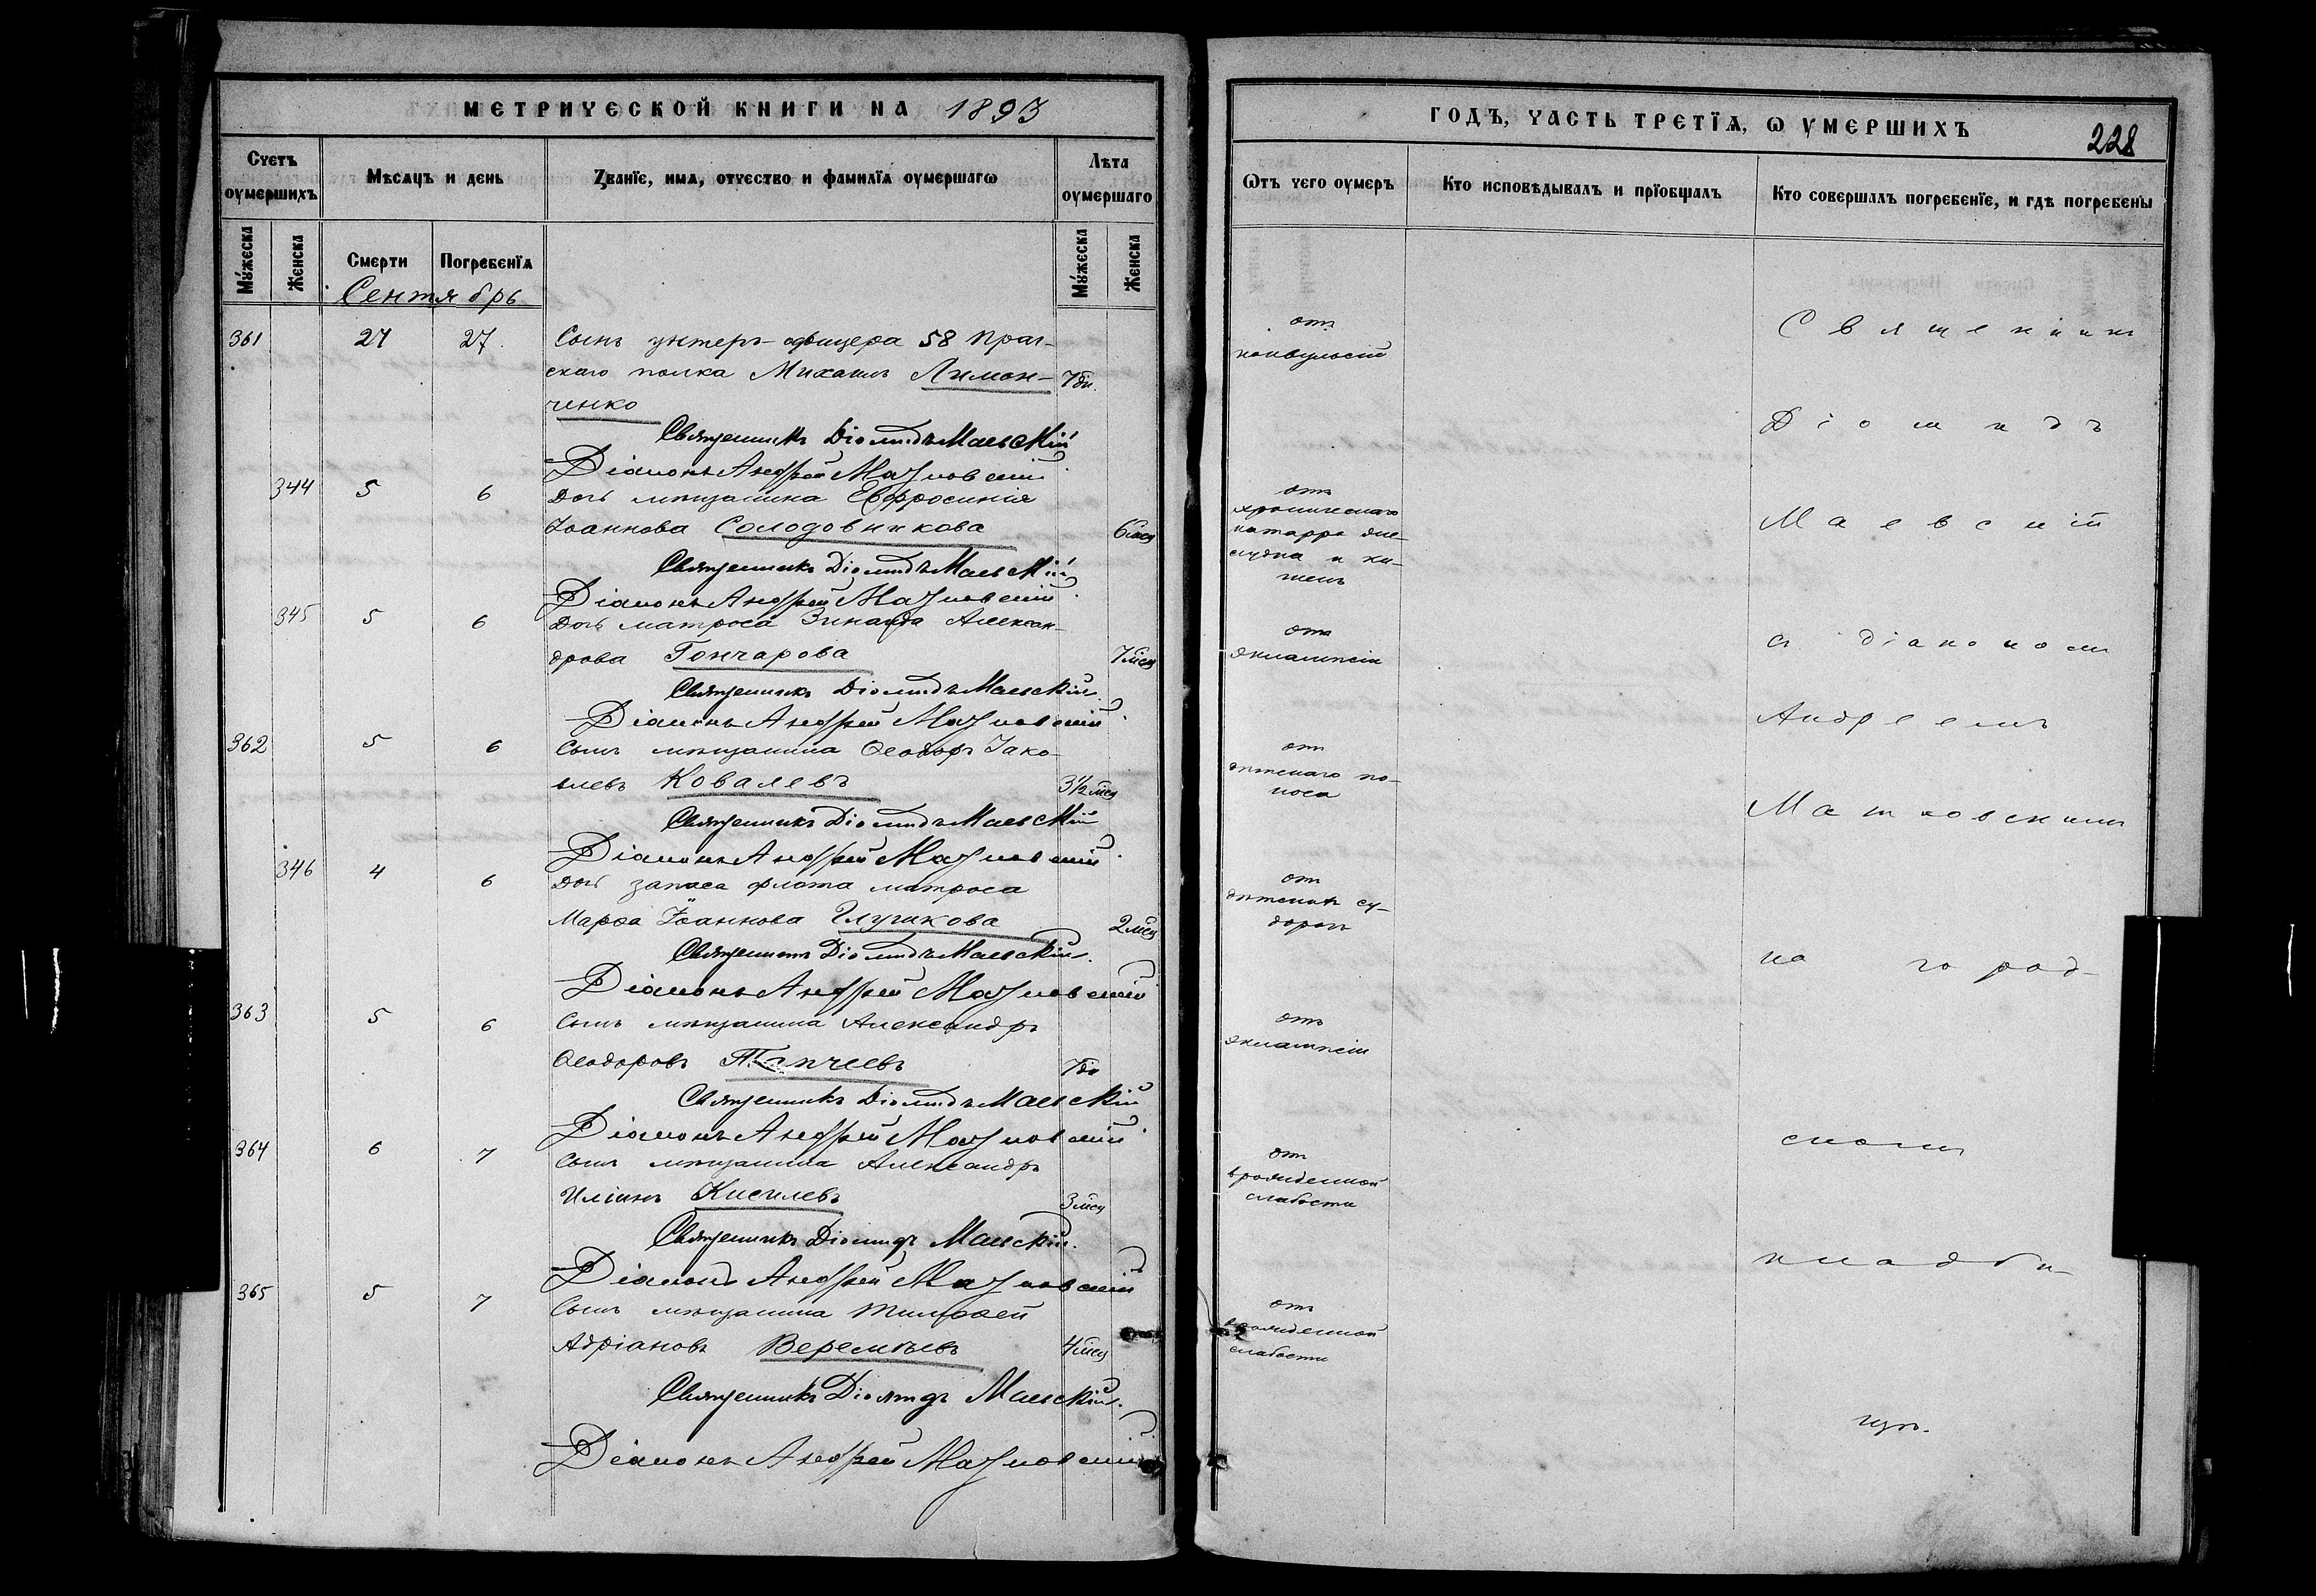 МЕТРИЧЕСКОЙ КНИГИ НА 1893
Счетъ оумершихъ
Мѣсяцъ и день
Званїе, имѧ, отчество и фамилїѧ оумершагѡ
Лѣта оумершаго
Мужеска
Женска
Смерти
Погребенїѧ
Мужеска
Женска
Сентябрь
361 27 27 Сынъ унтеръ-офицера 58 Праг-
скаго полка Михаилъ Лимон- 7 дн.
ченко
Священникъ Діомидъ Маевскій
Діаконъ Андрей Матковскій
344 5 6 Дочь мѣщанина Евфросинія
Іоаннова Солодовникова 6 мѣс
Священникъ Діомидъ Маевскій
Діаконъ Андрей Матковскій
345 5 6 Дочь матроса Зинаида Алексан-
дрова Гончарова 7 мѣс
Священникъ Діомидъ Маевскій
Діаконъ Андрей Матковскій
362 5 6 Сынъ мѣщанина Ѳеодоръ Іако-
влевъ Ковалевъ 3½ мѣс
Священникъ Діомидъ Маевскій
Діаконъ Андрей Матковскій
346 4 6 Дочь запаса флота матроса
Марѳа Іоаннова Глушкова 2 мѣс
Священникъ Діомидъ Маевскій
Діаконъ Андрей Матковскій
363 5 6 Сынъ мѣщанина Александръ
Ѳеодоровъ 7 дн
Священникъ Діомидъ Маевскій
Діаконъ Андрей Матковскій
364 6 7 Сынъ мѣщанина Александръ
Иліинъ Киселевъ 3 мѣс
Священникъ Діомидъ Маевскій
Діаконъ Андрей Матковскій
365 5 7 Сынъ мѣщанина Тимоѳей
Адріановъ Веремѣевъ 4 мѣс
Священникъ Діомидъ Маевскій
Діаконъ Андрей Матковскій
ГОДЪ, ЧАСТЬ ТРЕТЇѦ, Ѡ УМЕРШИХЪ
228
Ѿтъ чего оумеръ
Кто исповѣдывалъ и прїобщалъ
Кто совершалъ погребенїе, и гдѣ погребены
отъ
конвульсій
отъ
хроническаго
катарра же-
лудка и ки-
шекъ
отъ
эклампсіи
отъ
дѣтскаго по-
носа
отъ
дѣтскихъ су-
дорогъ
отъ
эклампсіи
отъ
врожденной
слабости
отъ
врожденной
слабости
Священникъ
Діомидъ
Маевскій
съ діакономъ
Андреемъ
Матковскимъ
на город-
скомъ
кладби-
щѣ.